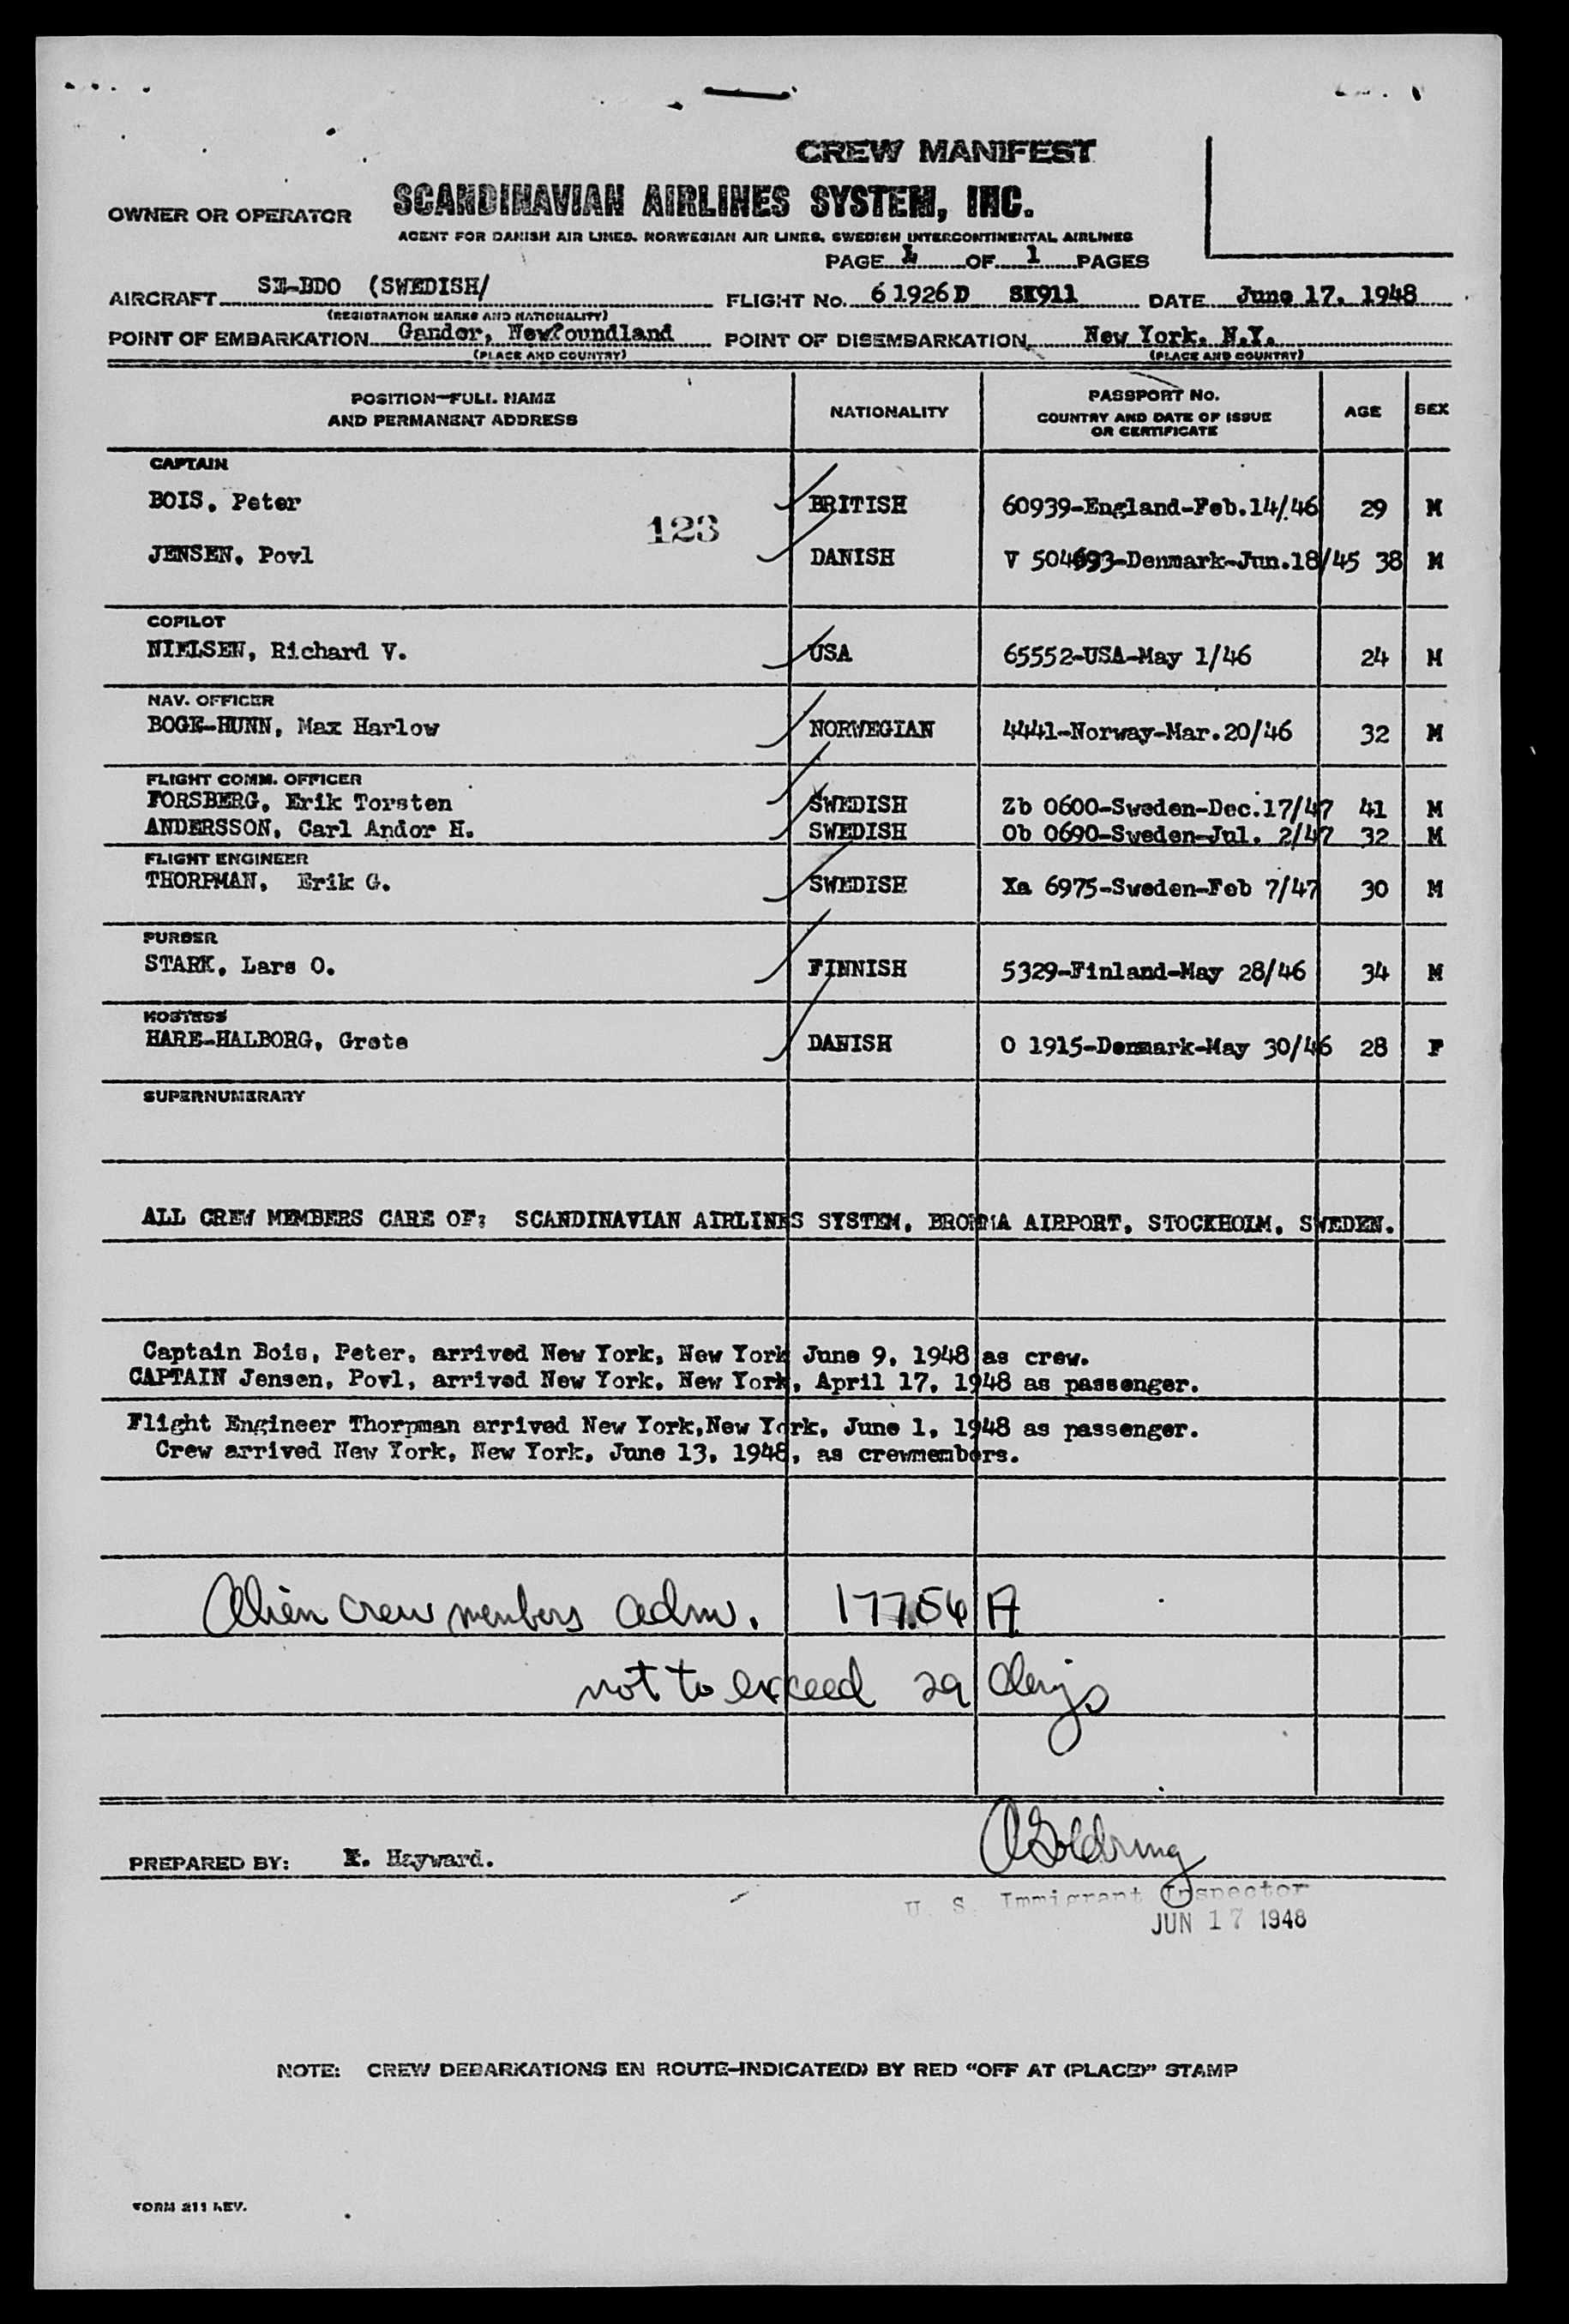 CREW MANIFEST
OWNER OR OPERATOR SCANDINAVIAN AIRLINES SYSTEM, INC.
AGENT FOR DANISH AIR LINES, NORWEGIAN AIR LINES, SWEDISH INTERCONTINENTAL AIRLINES
PAGE 1 OF 1 PAGES
AIRCRAFT SE-BDO (SWEDISH/ FLIGHT No. 6 1926 D SK911 DATE June 17, 1948
(REGISTRATION MARKS AND NATIONALITY)
POINT OF EMBARKATION Gander, Newfoundland POINT OF DISEMBARKATION New York, N.Y.
(PLACE AND COUNTRY) (PLACE AND COUNTRY)
POSITION—FULL NAME AND PERMANENT ADDRESS NATIONALITY PASSPORT No. COUNTRY AND DATE OF ISSUE OR CERTIFICATE AGE SEX
CAPTAIN
BOIS, Peter BRITISH 60939-England-Feb.14/46 29 M
123
JENSEN, Povl DANISH V 504693-Denmark-Jun.18/45 38 M
COPILOT
NIELSEN, Richard V. USA 65552-USA-May 1/46 24 M
NAV. OFFICER
BOGE-HUNN, Max Harlow NORWEGIAN 4441-Norway-Mar.20/46 32 M
FLIGHT COMM. OFFICER
FORSBERG, Erik Torsten SWEDISH Zb 0600-Sweden-Dec.17/47 41 M
ANDERSSON, Carl Andor H. SWEDISH Ob 0690-Sweden-Jul. 2/47 32 M
FLIGHT ENGINEER
THORPMAN, Erik G. SWEDISH Xa 6975-Sweden-Feb 7/47 30 M
PURSER
STARK, Lars O. FINNISH 5329-Finland-May 28/46 34 M
HOSTESS
HARE-HALBORG, Grete DANISH O 1915-Denmark-May 30/46 28 F
SUPERNUMERARY
ALL CREW MEMBERS CARE OF: SCANDINAVIAN AIRLINES SYSTEM, BROMMA AIRPORT, STOCKHOLM, SWEDEN.
Captain Bois, Peter, arrived New York, New York June 9, 1948 as crew.
CAPTAIN Jensen, Povl, arrived New York, New York, April 17, 1948 as passenger.
Flight Engineer Thorpman arrived New York,New York, June 1, 1948 as passenger.
Crew arrived New York, New York, June 13, 1948, as crewmembers.
Alien crew members adm. 177.56 A
not to exceed 29 days
AGoldring
PREPARED BY: K. Hayward.
U. S. Immigrant Inspector
JUN 17 1948
NOTE: CREW DEBARKATIONS EN ROUTE—INDICATE(D) BY RED "OFF AT (PLACE)" STAMP
FORM 211 REV.